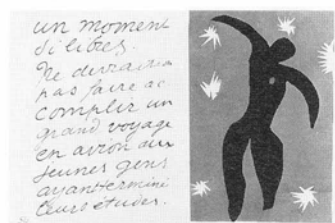 un moment
si libres.
Ne devrait-on
pas faire ac
complir un
grand voyage
en avion aux
jeunes gens
ayant terminé
leurs études.